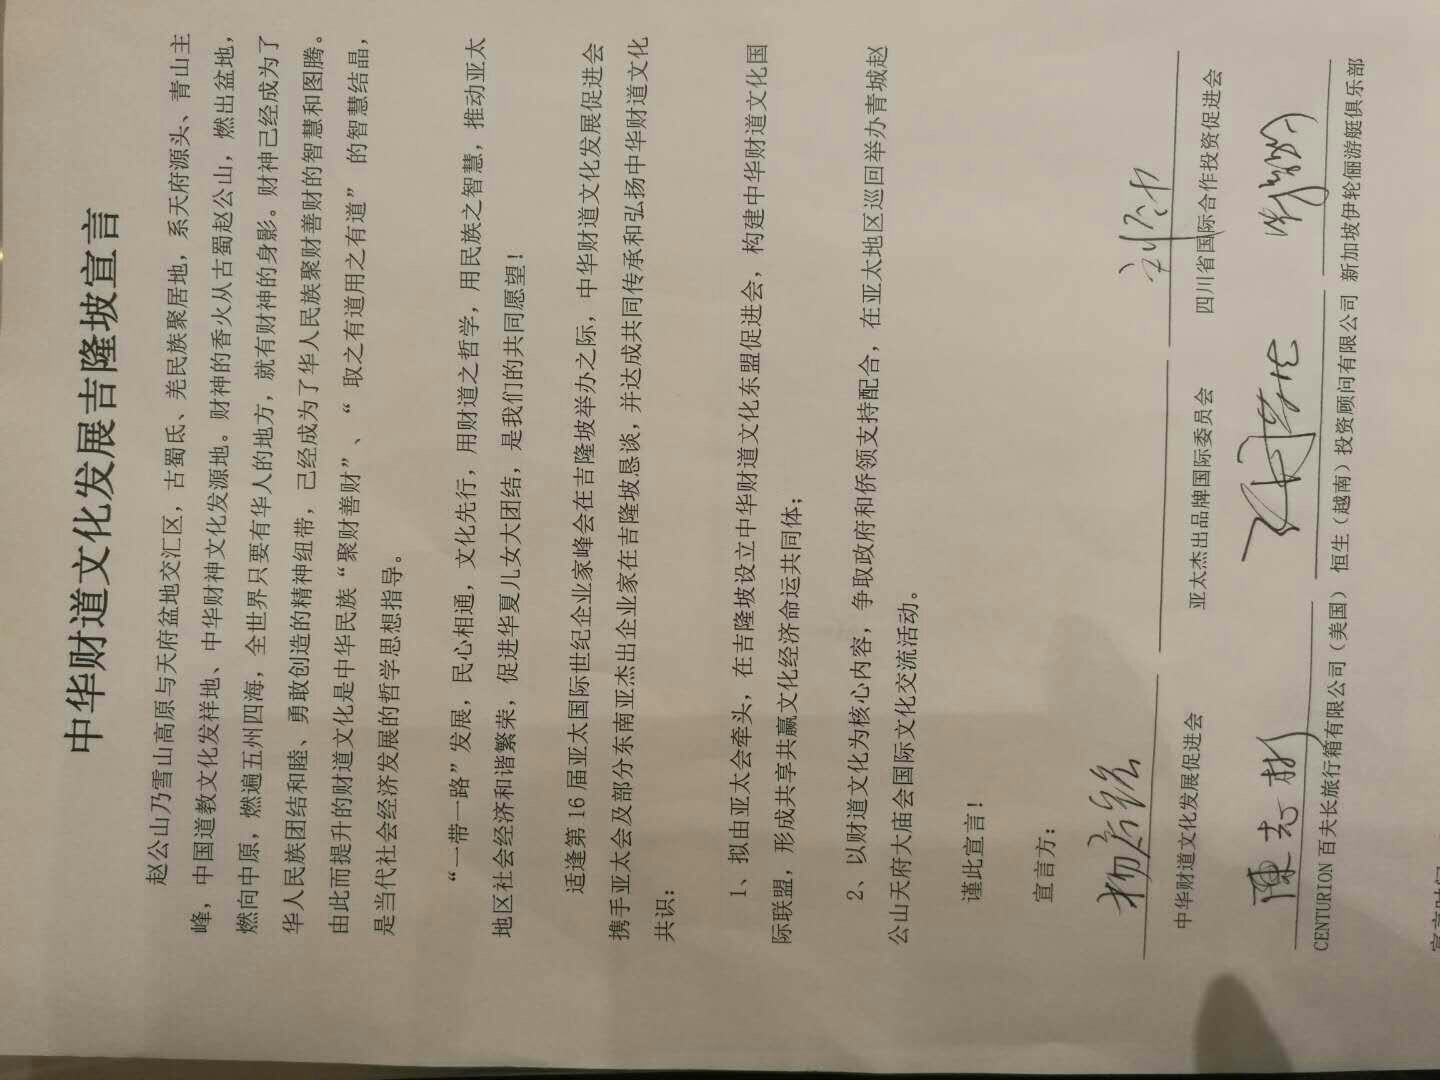 中华财道文化发展吉隆坡宣言
赵公山乃雪山高原与天府盆地交汇区，古蜀氐、羌民族聚居地，系天府源头、青山主
峰，中国道教文化发祥地、中华财神文化发源地。财神的香火从古蜀赵公山，燃出盆地，
燃向中原，燃遍五州四海，全世界只要有华人的地方，就有财神的身影。财神已经成为了
华人民族团结和睦、勇敢创造的精神纽带，已经成为了华人民族聚财善财的智慧和图腾。
由此而提升的财道文化是中华民族“聚财善财”、“ 取之有道用之有道” 的智慧结晶，
是当代社会经济发展的哲学思想指导。
“一带一路”发展，民心相通，文化先行，用财道之哲学，用民族之智慧，推动亚太
地区社会经济和谐繁荣，促进华夏儿女大团结，是我们的共同愿望！
适逢第16届亚太国际世纪企业家峰会在吉隆坡举办之际，中华财道文化发展促进会
携手亚太会及部分东南亚杰出企业家在吉隆坡恳谈，并达成共同传承和弘扬中华财道文化
共识：
1、拟由亚太会牵头，在吉隆坡设立中华财道文化东盟促进会，构建中华财道文化国
际联盟，形成共享共赢文化经济命运共同体；
2、以财道文化为核心内容，争取政府和侨领支持配合，在亚太地区巡回举办青城赵
公山天府大庙会国际文化交流活动。
谨此宣言！
宣言方：
中华财道文化发展促进会 亚太杰出品牌国际委员会 四川省国际合作投资促进会
陳志彬
CENTURION 百夫长旅行箱有限公司（美国） 恒生（越南）投资顾问有限公司 新加坡伊轮俪游艇俱乐部